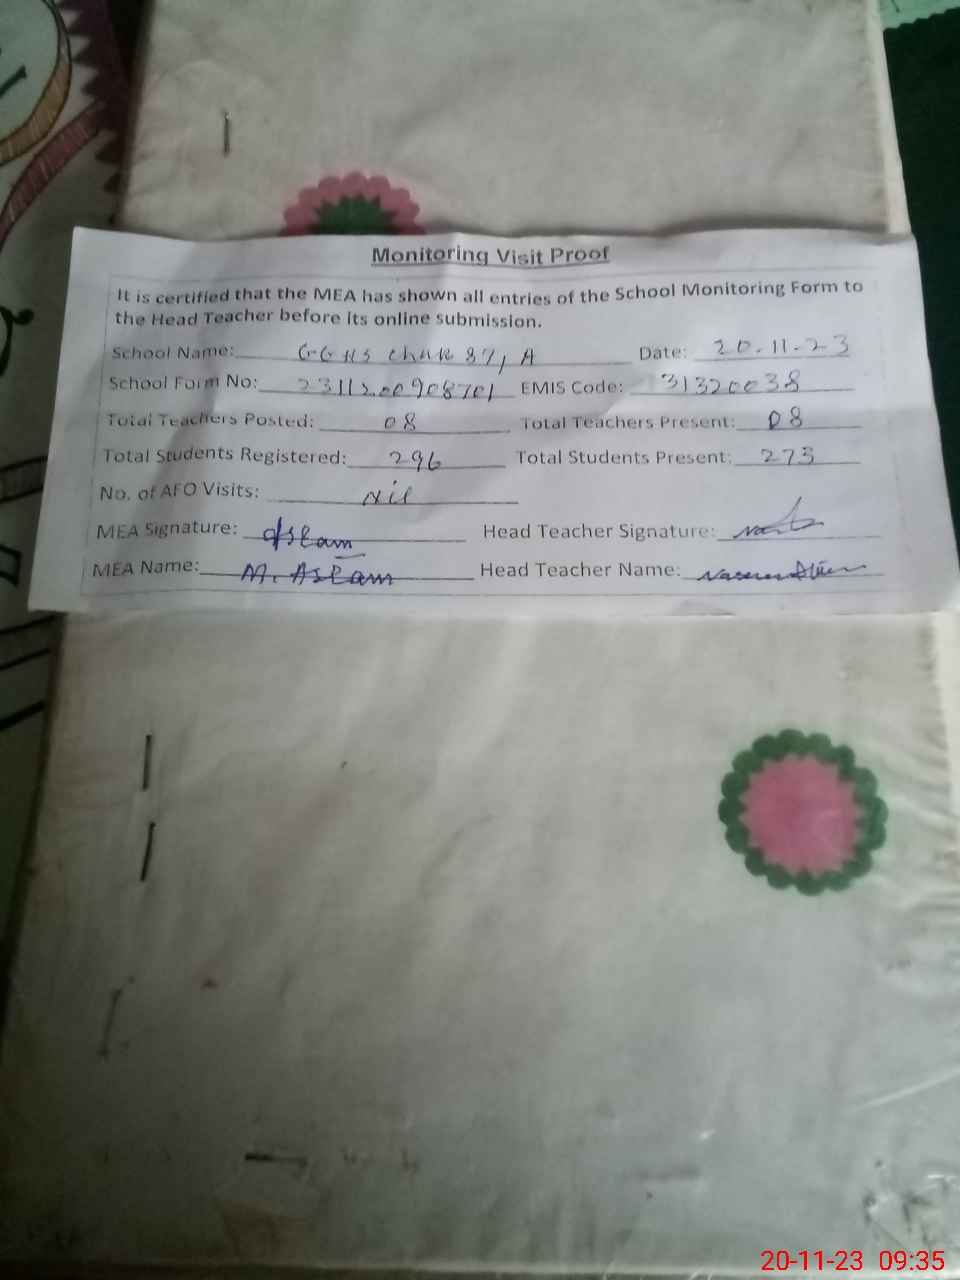 Monitoring Visit Proof
It is certified that the MEA has shown all entries of the School Monitoring Form to
the Head Teacher before its online submission.
School Name: GGHS Chak 87/A Date: 20.11.23
School Form No: 2311200908701 EMIS Code: 31320038
Total Teachers Posted: 08 Total Teachers Present: 08
Total Students Registered: 296 Total Students Present: 273
No. of AFO Visits: Nil
MEA Signature: Aslam Head Teacher Signature:
MEA Name: M. Aslam Head Teacher Name:
20-11-23 09:35